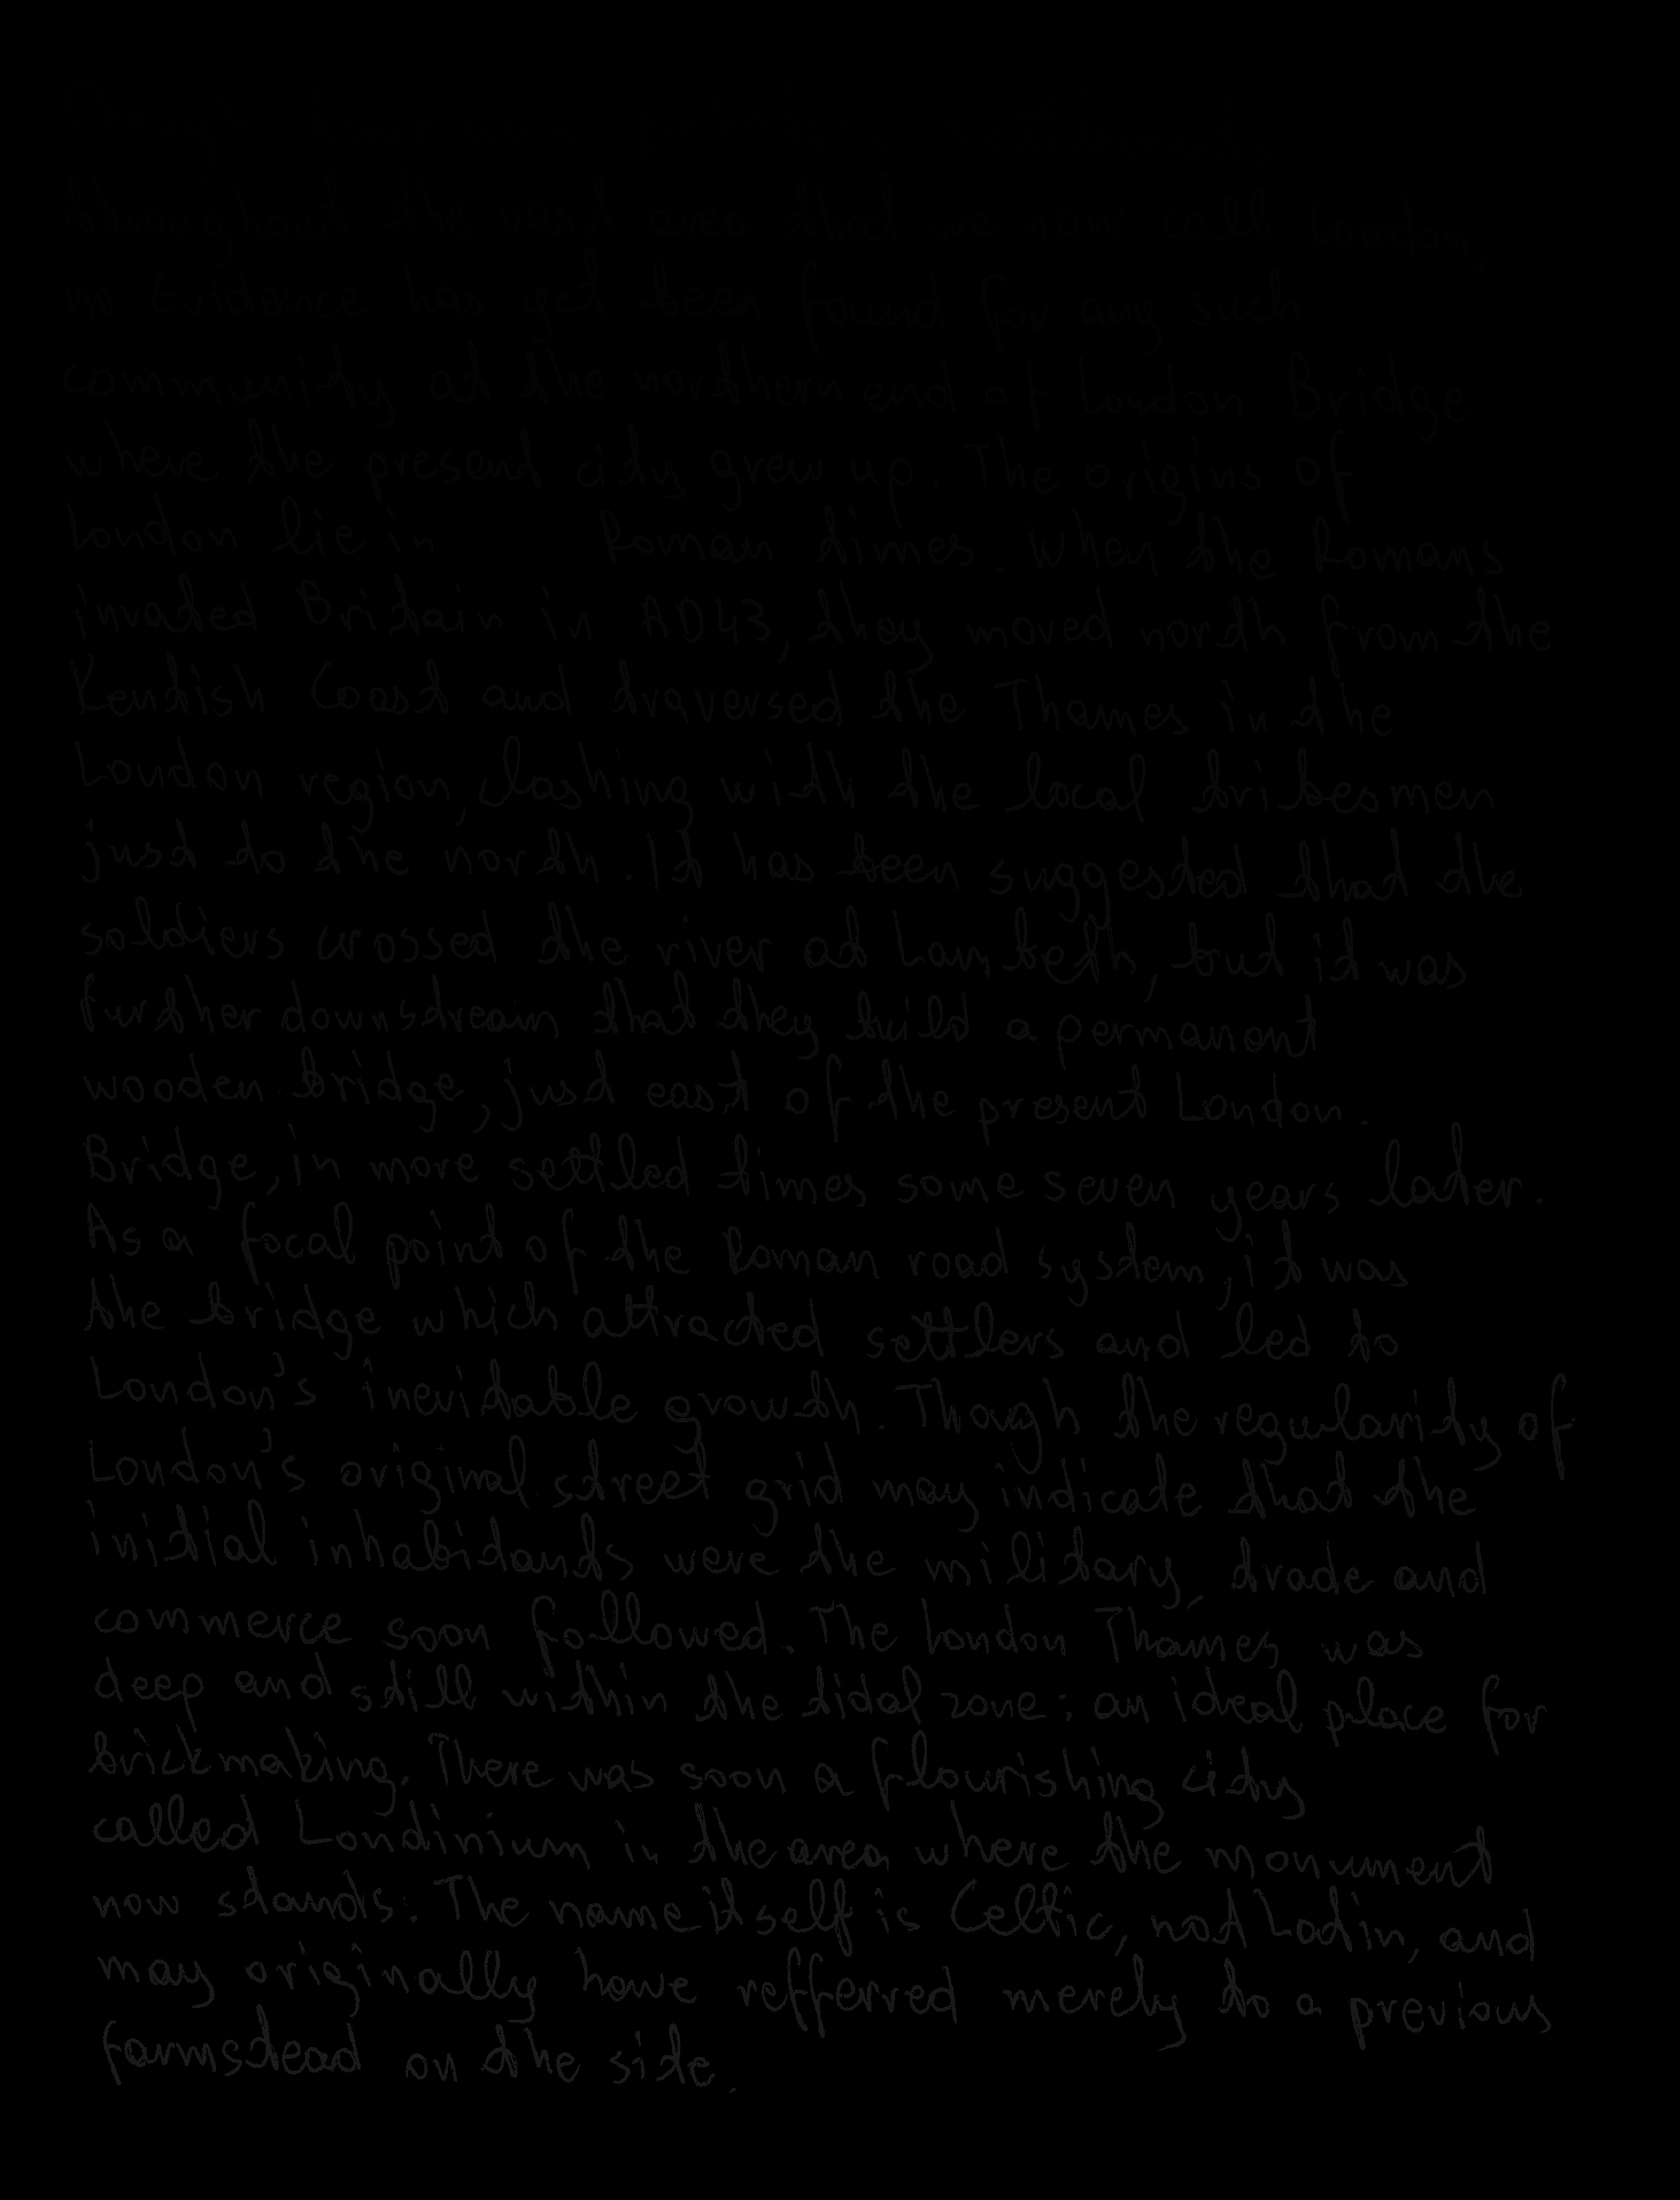 throughout the vast area that we now call London,
no Evidence has yet been found for any such
community at the northern end of London Bridge
where the present city grew up. The origins of
London lie in Roman times. When the Romans
invaded Britain in AD43, they moved north from the
Kentish Coast and traversed the Thames in the
London region, clashing with the local tribesmen
just to the north. It has been suggested that the
soldiers crossed the river at Lambeth, but it was
further downstream that they build a permanent
wooden bridge, just east of the present London.
Bridge, in more settled times some seven years later.
As a focal point of the Roman road system, it was
the bridge which attracted settlers and led to
London's inevitable growth. Though the regularity of
London's original street grid may indicate that the
initial inhabitants were the military, trade and
commerce soon followed. The London Thames was
deep and still within the tidal zone: an ideal place for
brickmaking. There was soon a flourishing city
called Londinium in the area where the monument
now stands: The name itself is Celtic, not Latin, and
may originally have refferred merely to a previous
farmstead on the side.